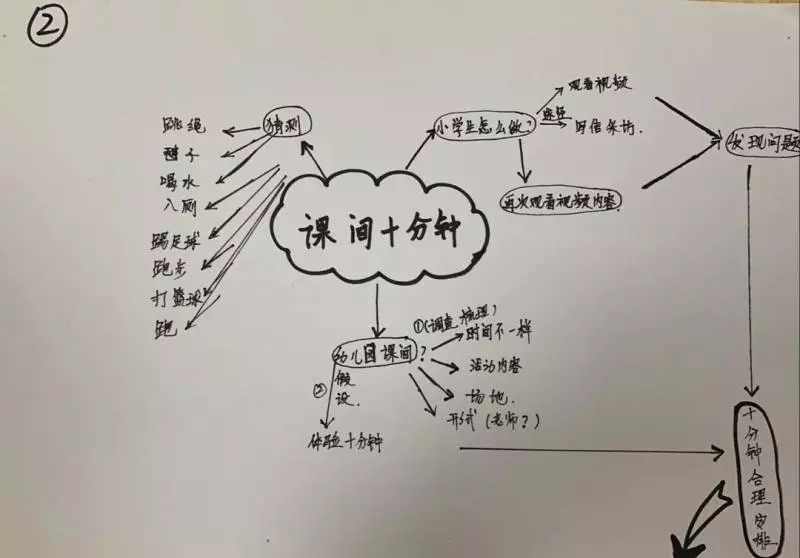 ②
课间十分钟
猜测
跳绳
毽子
喝水
入厕
踢足球
跑步
打篮球
跑
小学生怎么做?
途径
观看视频
写信采访.
再次观看视频内容.
发现问题
幼儿园课间?
①(调查梳理)
时间不一样
活动内容
场地.
形式(老师?)
②
假
设.
体验十分钟
十分钟合理安排